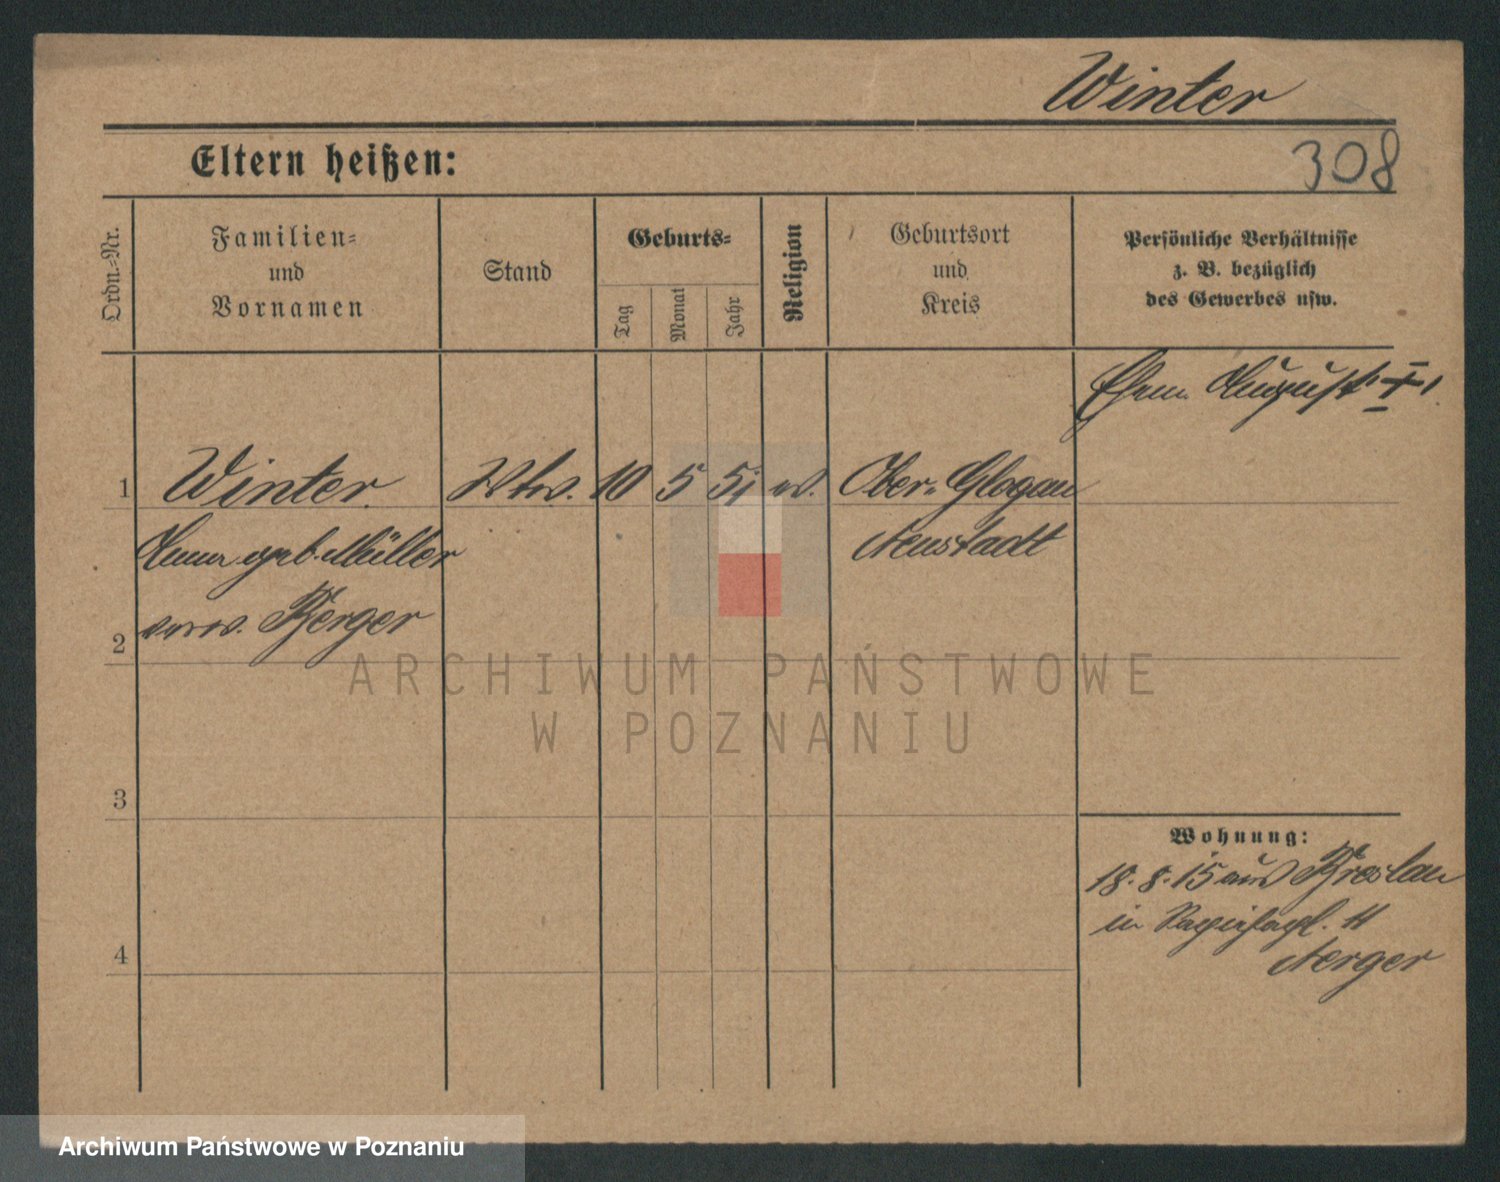 Winter
308
Eltern heißen:
Ordn.-Nr.
Familien-
und
Vornamen
Stand
Geburts-
Tag
Monat
Jahr
Religion
Geburtsort
und
Kreis
Persönliche Verhältnisse
z. B. bezüglich
des Gewerbes usw.
Ehem. August †.
1 Winter. Wtw. 10 5 51 ev. Ober-Glogau
Anna geb. Müller Neustadt
2 verw. Berger
3
4
Wohnung:
18.8.15 aus Breslau
in
Nerger
ARCHIWUM PAŃSTWOWE
W POZNANIU
Archiwum Państwowe w Poznaniu